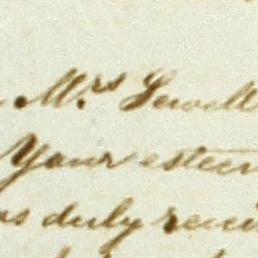 Mrs Sewell
Your esteem
as duly recei